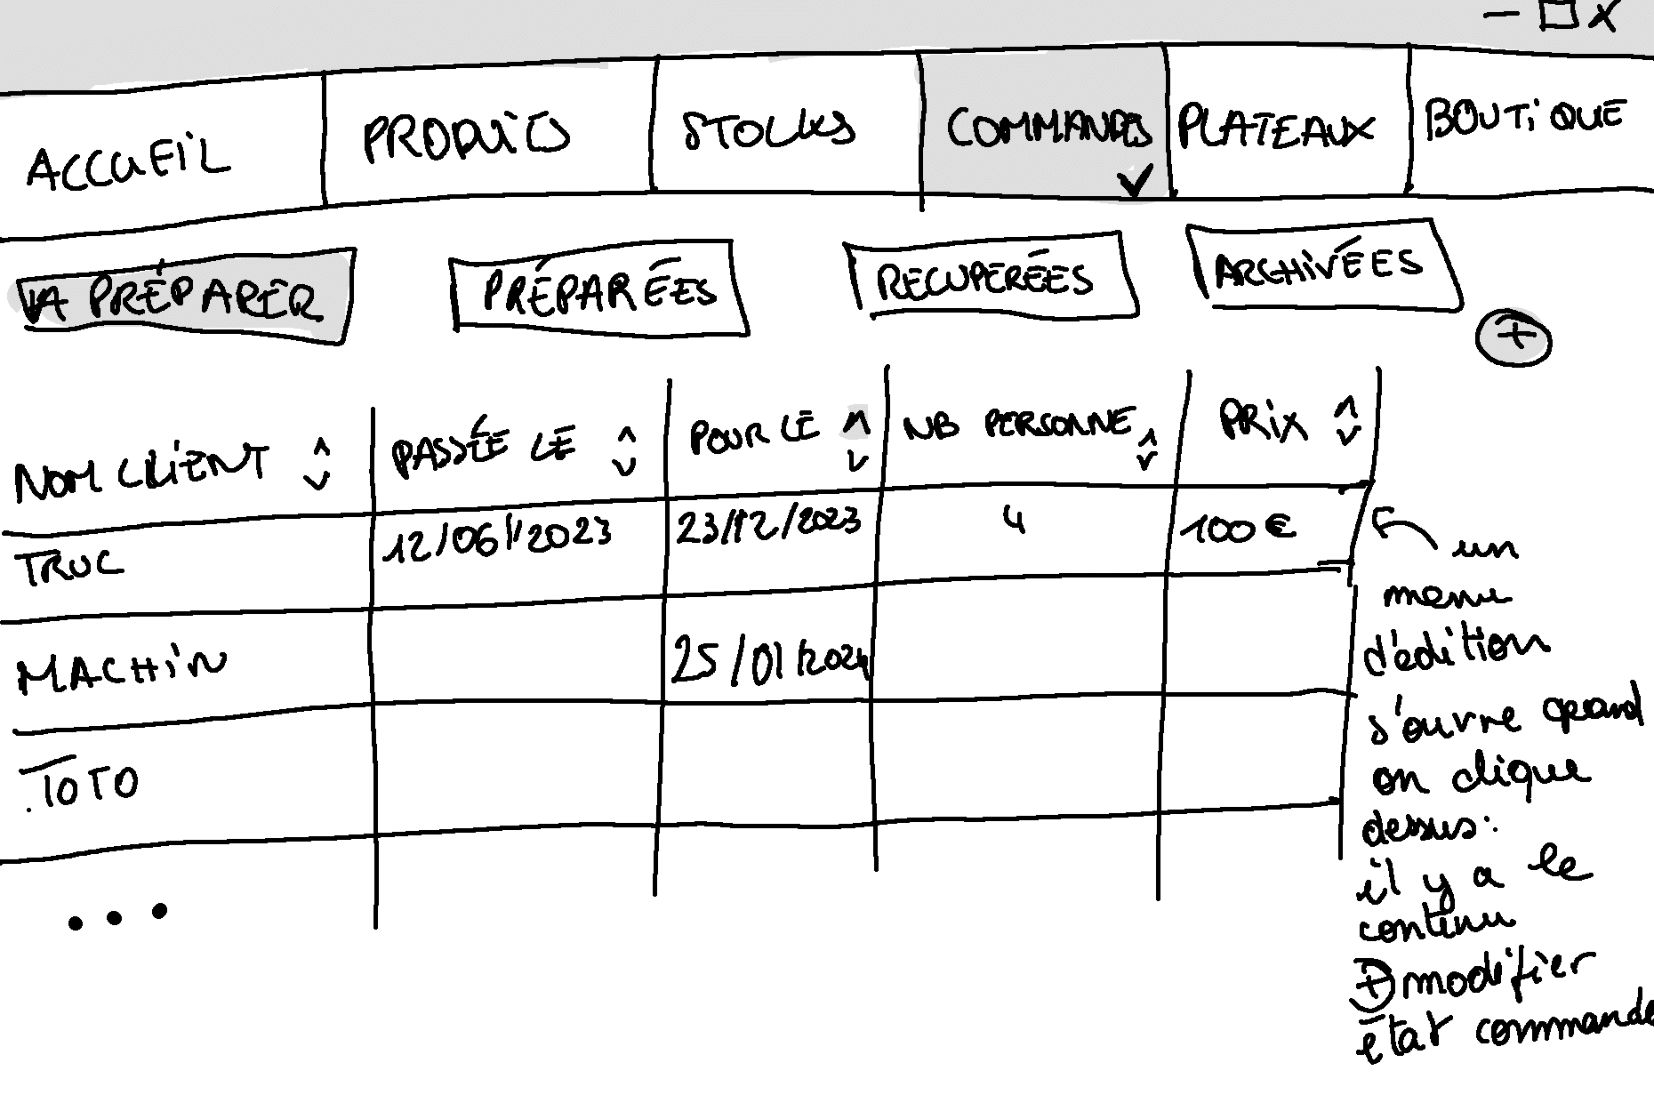 ACCUEIL PRODUITS STOCKS COMMANDES PLATEAUX BOUTIQUE
A PRÉPARER PRÉPARÉES RECUPÉRÉES ARCHIVÉES
+
NOM CLIENT PASSÉE LE POUR LE NB PERSONNE PRIX
TRUC 12/06/2023 23/12/2023 4 100€
MACHIN 25/01/2024
TOTO
...
un
menu
d'édition
s'ouvre quand
on clique
dessus:
il y a le
contenu
+ modifier
état commande